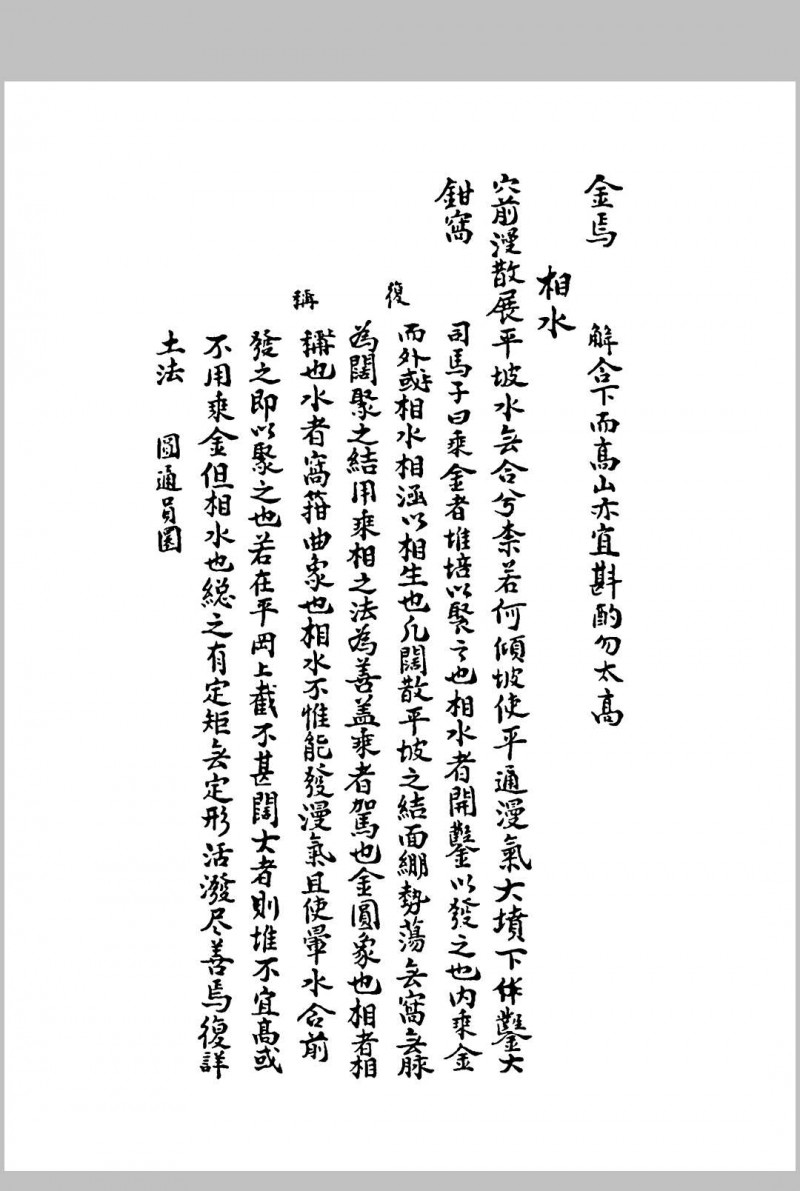 金焉 解合下而高山亦宜斟酌勿太高
相水
穴前漫散展平坡水無合兮柰若何傾坡使平通漫氣大墳下作鑿大
鉗窩
司馬子曰乘金者堆培以聚之也相水者開鑿以發之也内乘金
復
而外或相水相涵以相生也凡闊散平坡之結面綳勢蕩無窩無脉
為闊聚之結用乘相之法為善盖乘者駕也金圓象也相者相
稱
稱也水者窩箝曲象也相水不惟能發漫氣且使暈水合前
發之即以聚之也若在平岡上截不甚闊大者則堆不宜高或
不用乘金但相水也総之有定矩無定形活潑尽善焉復詳
土法 圖通員圖